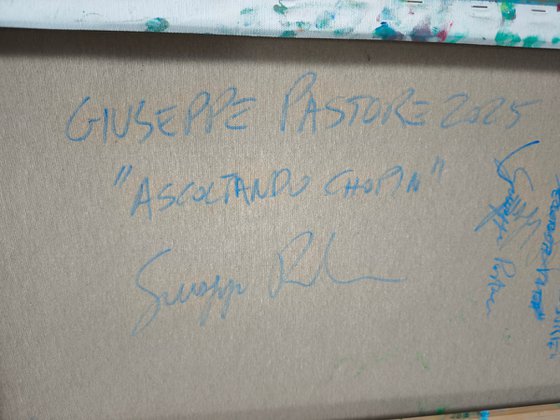 GIUSEPPE PASTORE 2025
"ASCOLTANDO CHOPIN"
Giuseppe
Giuseppe Pastore